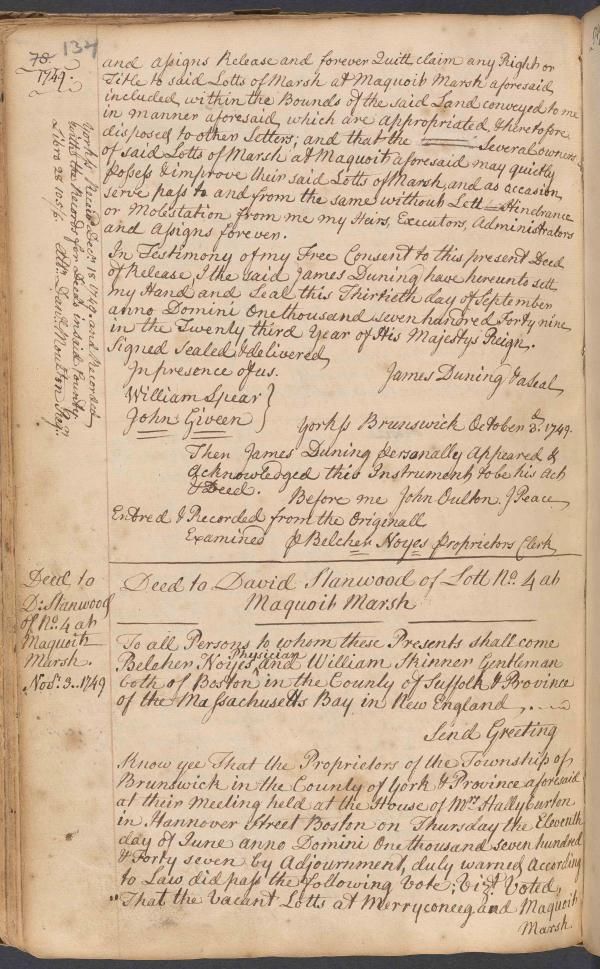 78. 134
1749.
and assigns Release and forever Quitt claim any Right or
Title to said Lotts of Marsh at Maquoit Marsh aforesaid
included within the Bounds of the said Land conveyed to me
in manner aforesaid which are appropriated, & heretofore
disposed to other Setlers; and that the Several owners
of said Lotts of Marsh at Maquoit aforesaid may quietly
Possess & improve their said Lotts of Marsh, and as occasion
serve pass to and from the same without Lett Hindrance
or Molestation from me my Heirs, Executors, Administrators
and Assigns forever.
In Testimony of my Free Consent to this present Deed
of Release, I the said James Duning have hereunto sett
my Hand and Seal this Thirtieth day of September
anno Domini One thousand seven hundred Forty nine
in the Twenty third Year of His Majestys Reign.
Signed Sealed & delivered
In presence of us.
James Duning & a Seal
William Spear }
John Giveen }
York ss Brunswick October 3d. 1749.
Then James Duning personally Appeared &
Acknowledged this Instrument to be his Act
& Deed.
Before me John Oulton J Peace
Entred & Recorded from the Originall
Examined P Belcher Noyes Proprietors Clerk
York ss. Received Decr. 18 1749. and Recorded
with the Records for Deeds in said County
Libro 28 105/6. Attr. Danl. Moulton Regr.
Deed to
D: Stanwood
of No. 4 at
Maquoit
Marsh.
Nov. 3. 1749
Deed to David Stanwood of Lott No. 4 at
Maquoit Marsh
To all Persons to whom these Presents shall come
Belcher Noyes Physician and William Skinner Gentleman
both of Boston in the County of Suffolk & Province
of the Massachusetts Bay in New England,
Send Greeting
Know yee That the Proprietors of the Township of
Brunswick in the County of York & Province aforesaid
at their Meeting held at the House of Mrs. Hallyburton
in Hannover Street Boston on Thursday the Eleventh
day of June anno Domini One thousand seven hundred
& Forty seven by Adjournment, duly warned according
to Law did pass the following Vote; Vizt. Voted
"That the Vacant Lotts at Merryconeeg and Maquoit
Marsh